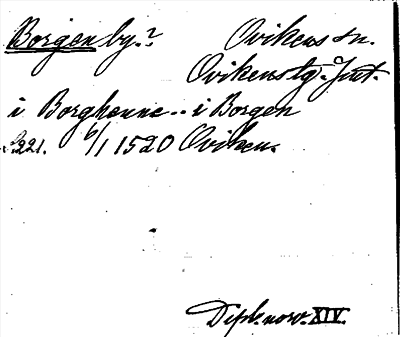 Borgen by.? Ovikens sn.
Ovikens tg. Jmt.
i Borghenne .. i Borgen
s.221. 6/1 1520 Oviken.
Dipl. norv. XIV.